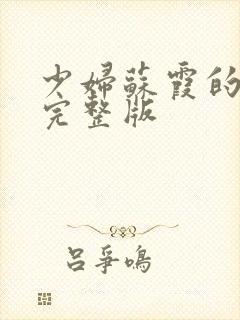 少婦蘇霞的
完整版
吕爭鳴